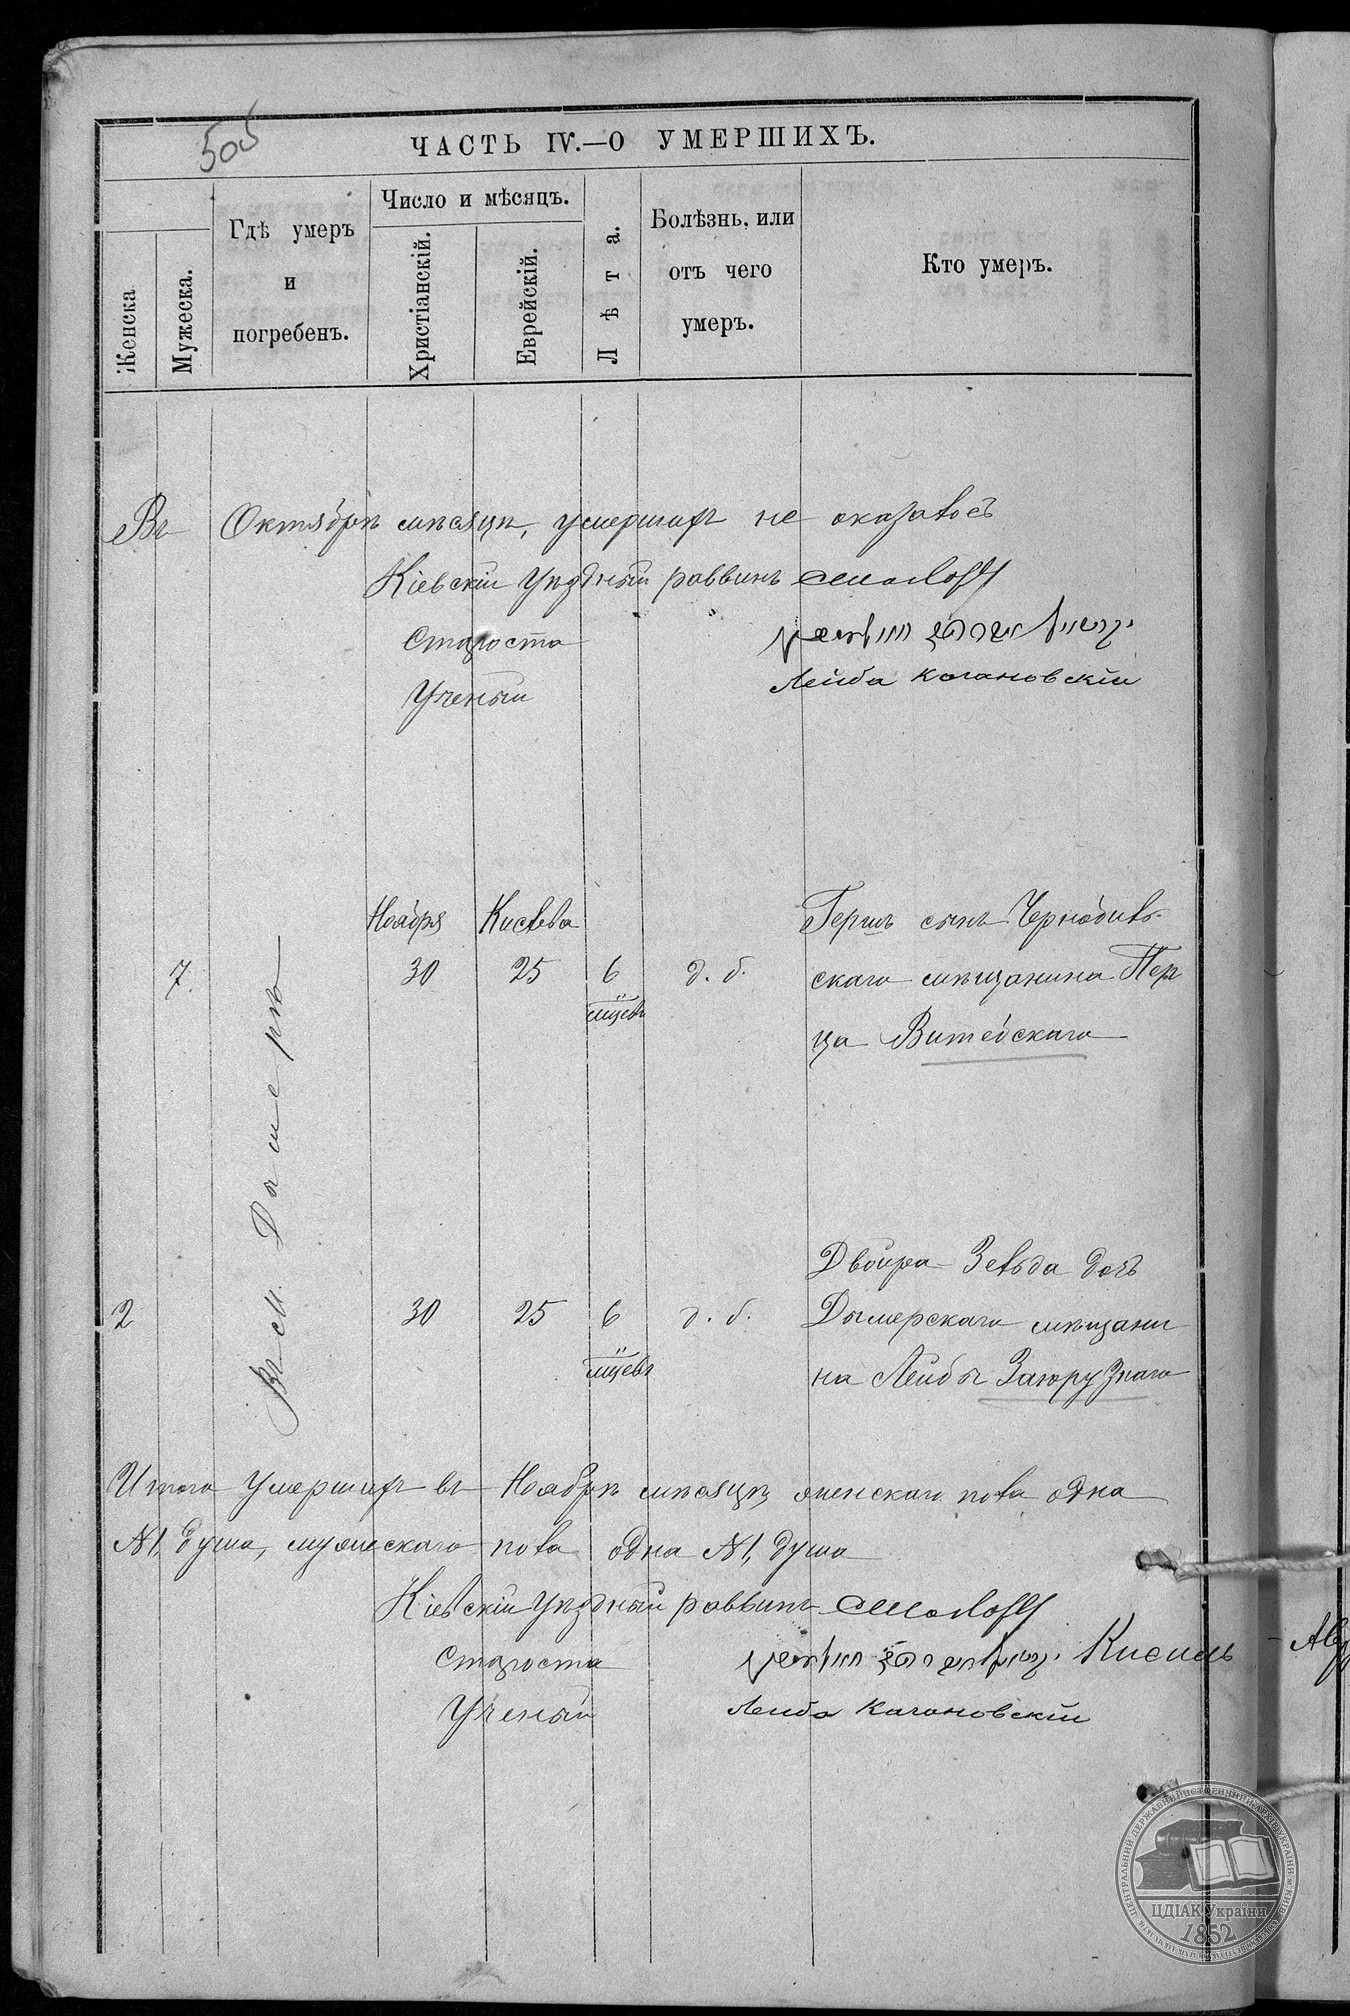 505
ЧАСТЬ IV.—О УМЕРШИХЪ.
Женска
Мужеска.
Гдѣ умеръ
и
погребенъ.
Число и мѣсяцъ.
Христіанскій.
Еврейскій.
Лѣта.
Болѣзнь, или
отъ чего
умеръ.
Кто умеръ.
Въ Октябрѣ мѣсяцѣ, умершихъ не оказалось
Кіевскій Уѣздный раввинъ
Староста
Ученый Лейба Кагановскій
Ноября Кислева
7. 30 25 6 д. б.
мцевъ
Гершъ сынъ Чернобыль-
скаго мѣщанина Пер
ца Витебскаго
Въ м. Дымерѣ
2 30 25 6 д. б.
мцевъ
Двойра Зельда дочь
Дымерскаго мѣщани
на Лейбы
Итого умершихъ въ Ноябрѣ мѣсяцѣ женскаго пола одна
№1, душа, мужескаго пола одна №1, душа
Кіевскій Уѣздный раввинъ
Староста Кисиль
Ученый Лейба Кагановскій
ЦДІАК України
1852